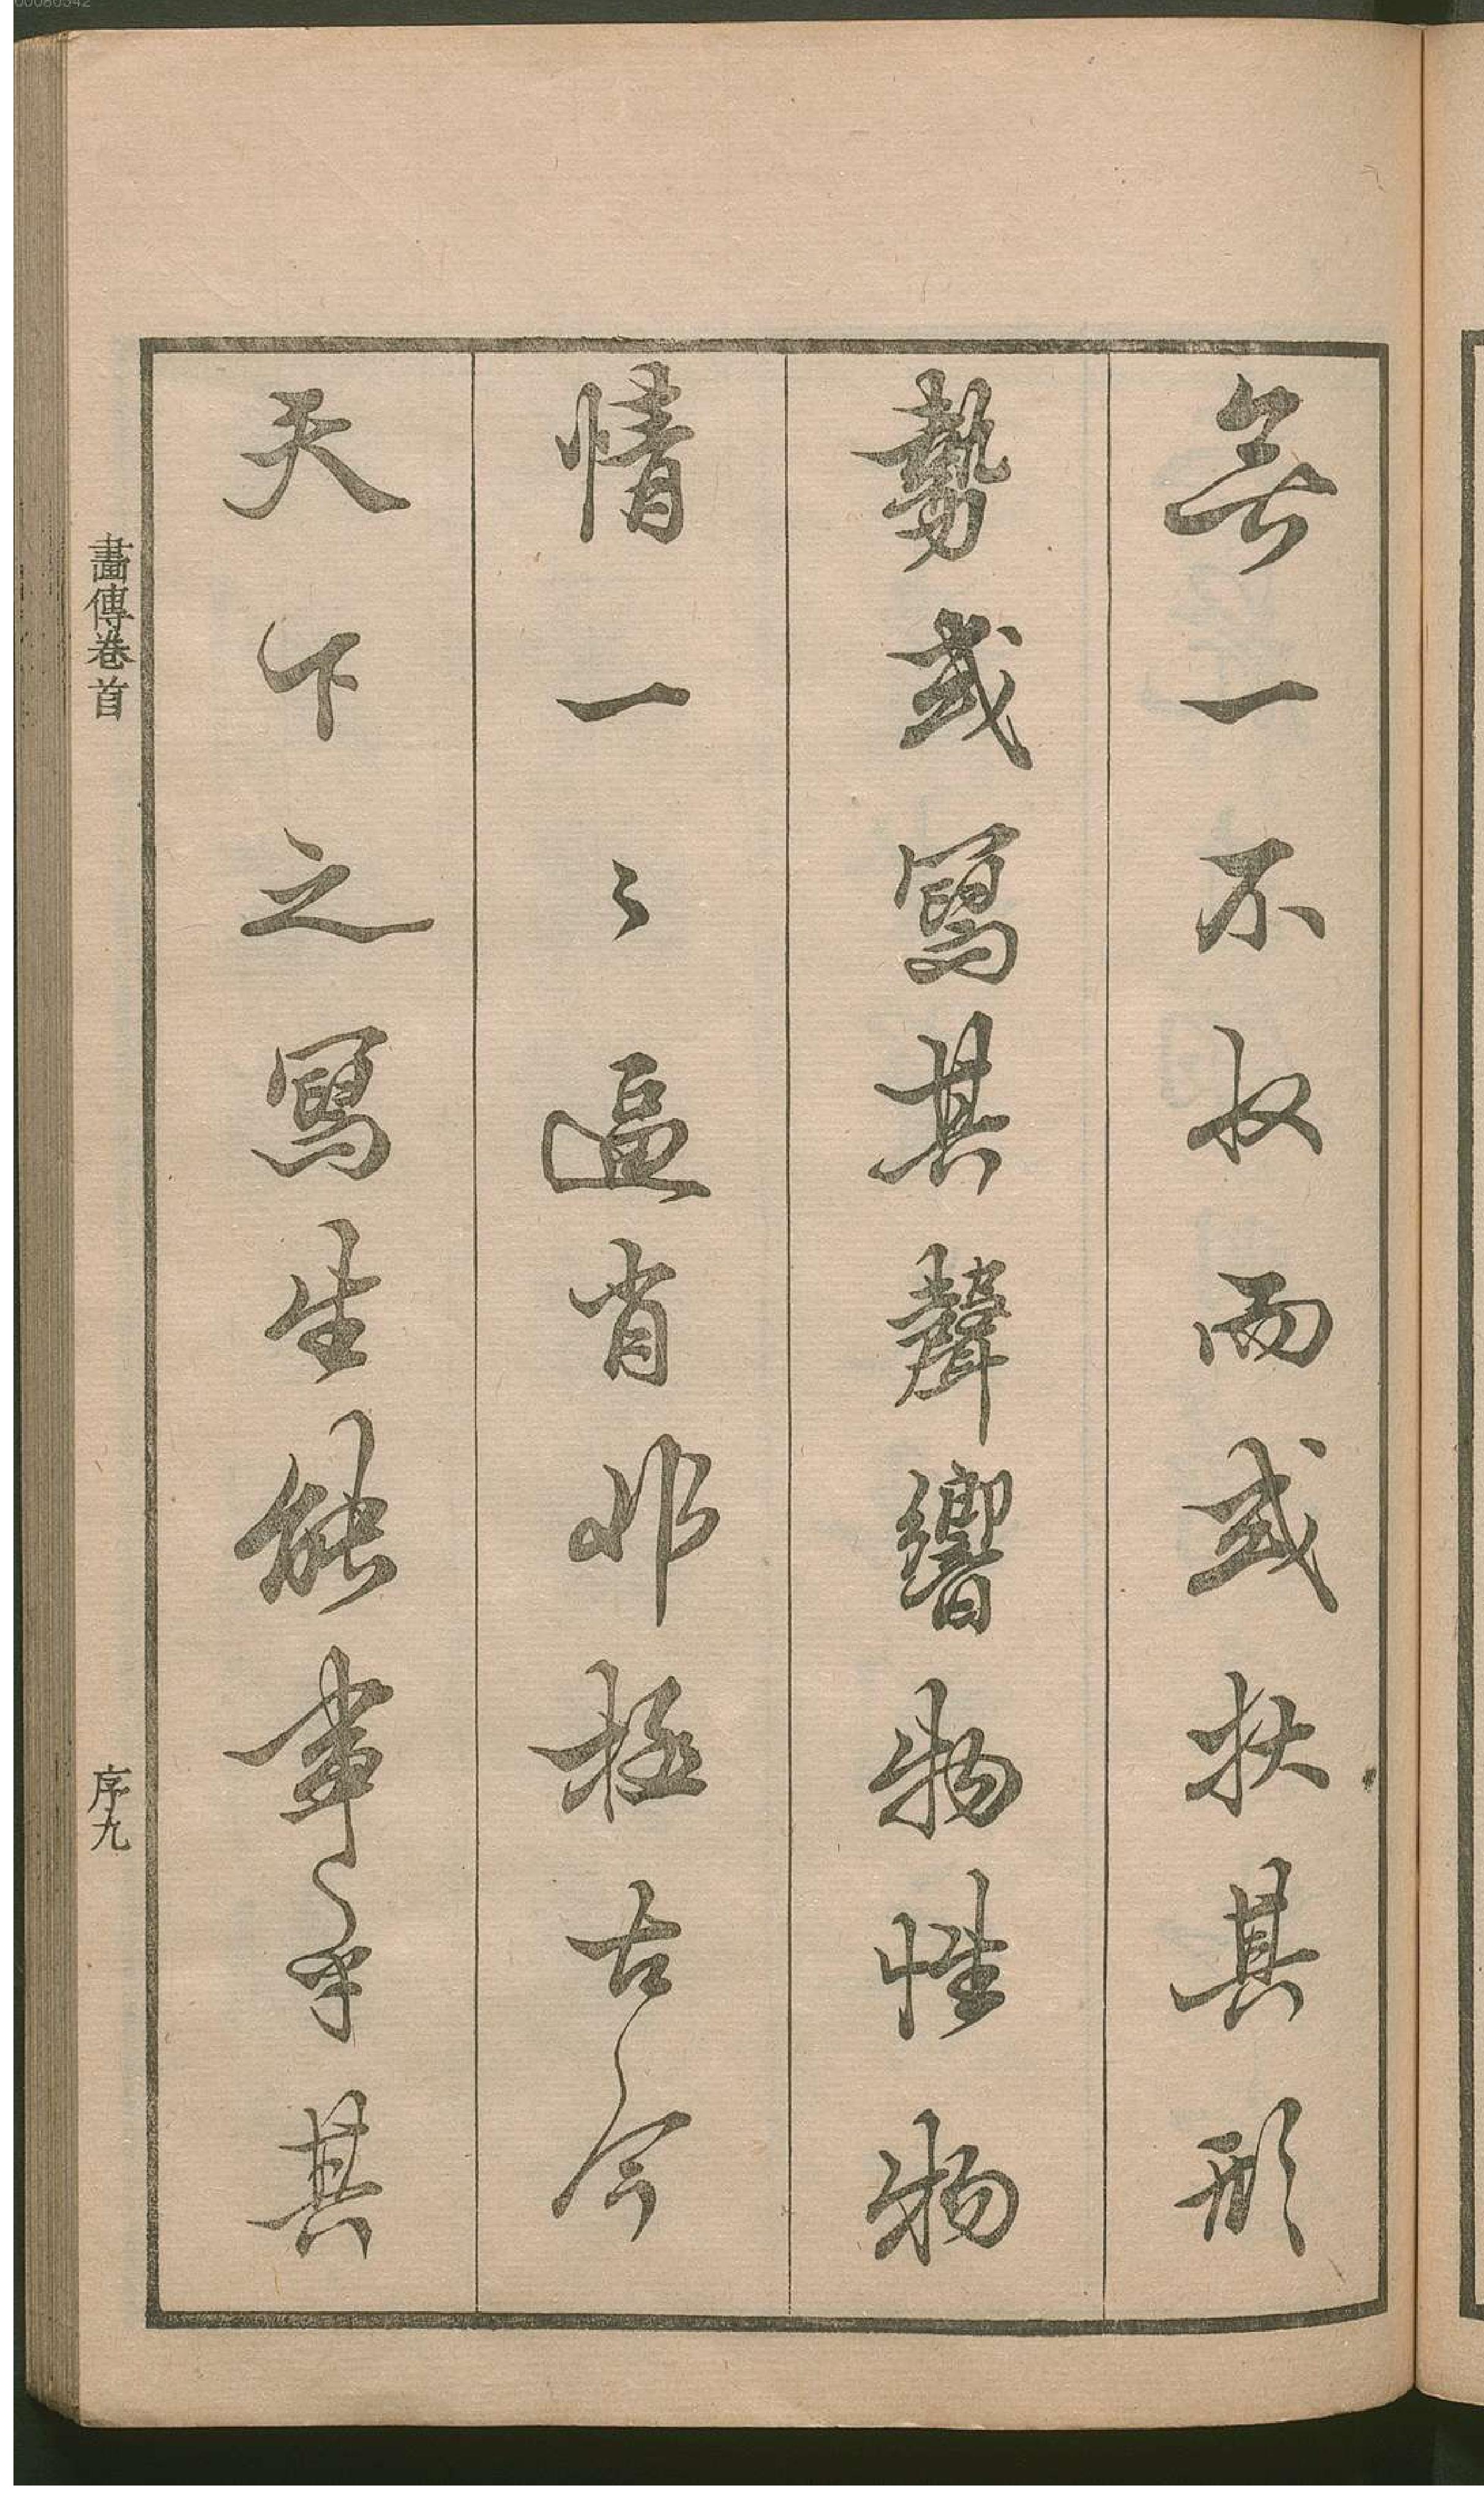 無一不収而或狀其形
勢或寫其聲響物性物
情一〻逼肖非極古今
天下之寫生能事乎其
畫傳卷首
序九